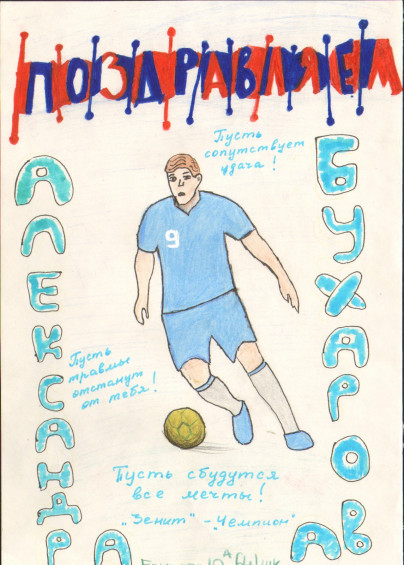 ПОЗДРАВЛЯЕМ
Пусть
сопутствует
удача!
АЛЕКСАНДР
БУХАРОВ
9
Пусть
травмы
отстанут
от тебя!
Пусть сбудутся
все мечты!
„Зенит" - „Чемпион"